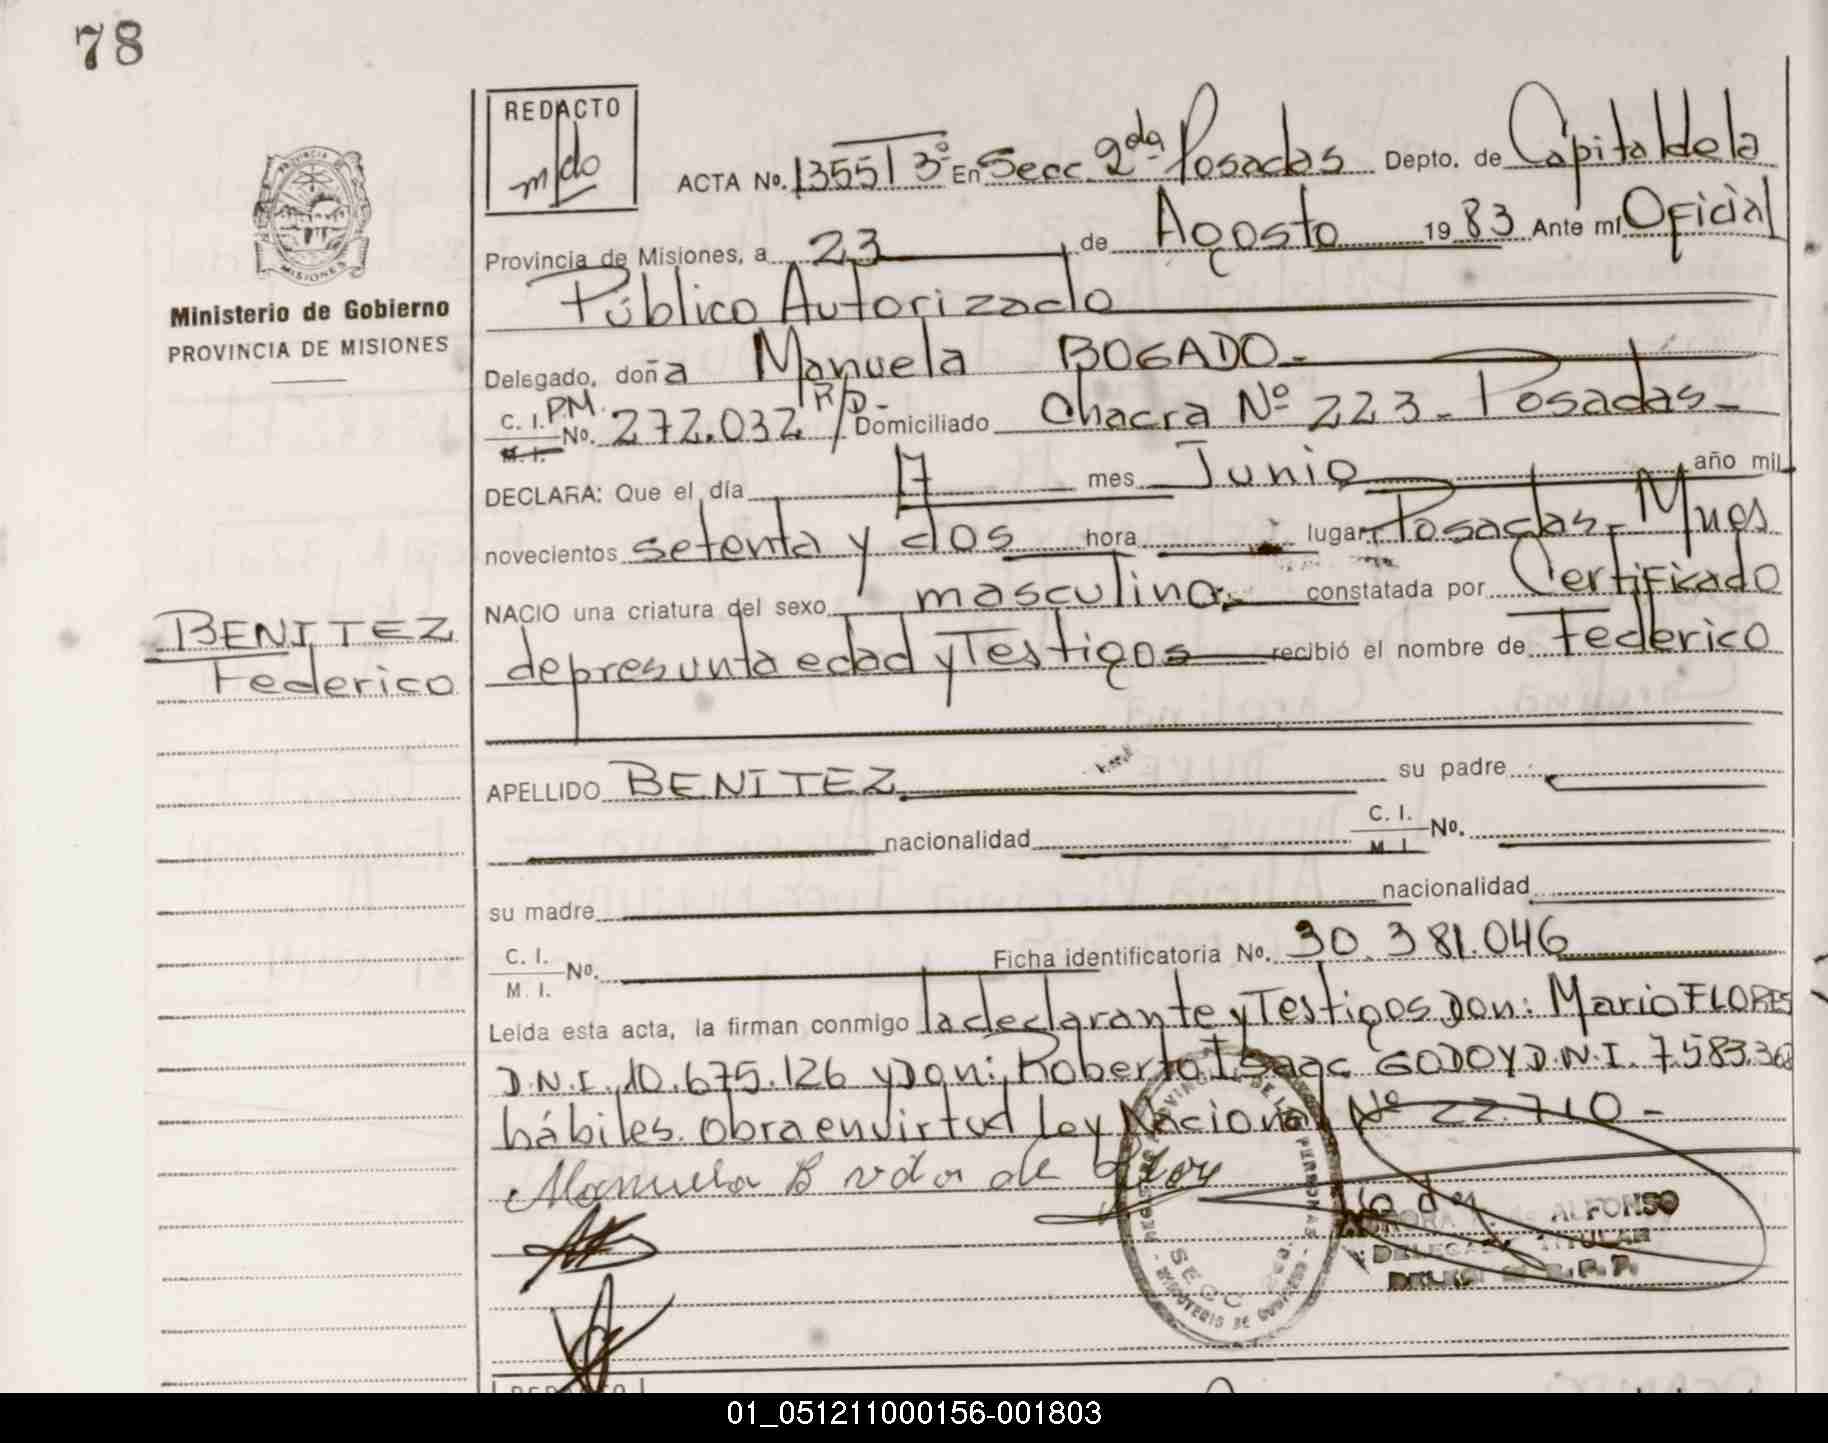 78
REDACTO
ACTA No. 1355 T 3º En Secc. 2da Posadas Depto. de Capital de la
Provincia de Misiones, a 23 de Agosto 1983 Ante mí Oficial
Público Autorizado
Ministerio de Gobierno
PROVINCIA DE MISIONES
Delegado, doña Manuela BOGADO.-
C. I. P.M. M. I. No. 272.032 R/D- Domiciliado Chacra Nº 223- Posadas-
DECLARA: Que el día 17 mes Junio año mil
novecientos setenta y dos hora lugar Posadas- Mnes
NACIO una criatura del sexo masculino.- constatada por Certificado
BENITEZ
Federico
de presunta edad y Testigos recibió el nombre de Federico
APELLIDO BENITEZ su padre
nacionalidad C. I. M. I. No.
su madre nacionalidad
C. I. M. I. No. Ficha identificatoria No. 30.381.046
Leída esta acta, la firman conmigo la declarante y Testigos Don: Mario FLORES
D.N.I. 10.675.126 y Don: Roberto Isaac GODOY D.N.I. 7.583.
hábiles. Obra en virtud Ley Nacional Nº 22.710-
Manuela B vda de
ALFONSO
DELEGADA TITULAR
SECC 2da.
REDACTO
01_051211000156-001803